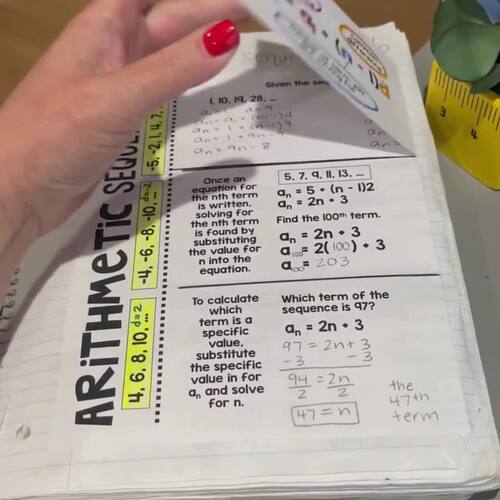 ARITHMETIC SEQUE
4, 6, 8, 10, ... d=2
-4, -6, -8, -10, ... d=-2
-5, -2, 1, 4, 7,
Given the seq
1, 10, 19, 28, ...
aₙ = a₁ + (n-1)d
aₙ = 1 + (n-1)9
aₙ = 1 + 9n - 9
aₙ = 9n - 8
Once an
equation for
the nth term
is written,
solving for
the nth term
is found by
substituting
the value for
n into the
equation.
5, 7, 9, 11, 13, ...
aₙ = 5 + (n - 1)2
aₙ = 2n + 3
Find the 100th term.
aₙ = 2n + 3
a₁₀₀ = 2(100) + 3
a₁₀₀ = 203
To calculate
which
term is a
specific
value,
substitute
the specific
value in for
aₙ and solve
for n.
Which term of the
sequence is 97?
aₙ = 2n + 3
97 = 2n + 3
-3 -3
94 = 2n
2 2
47 = n
the
47th
term
3 4